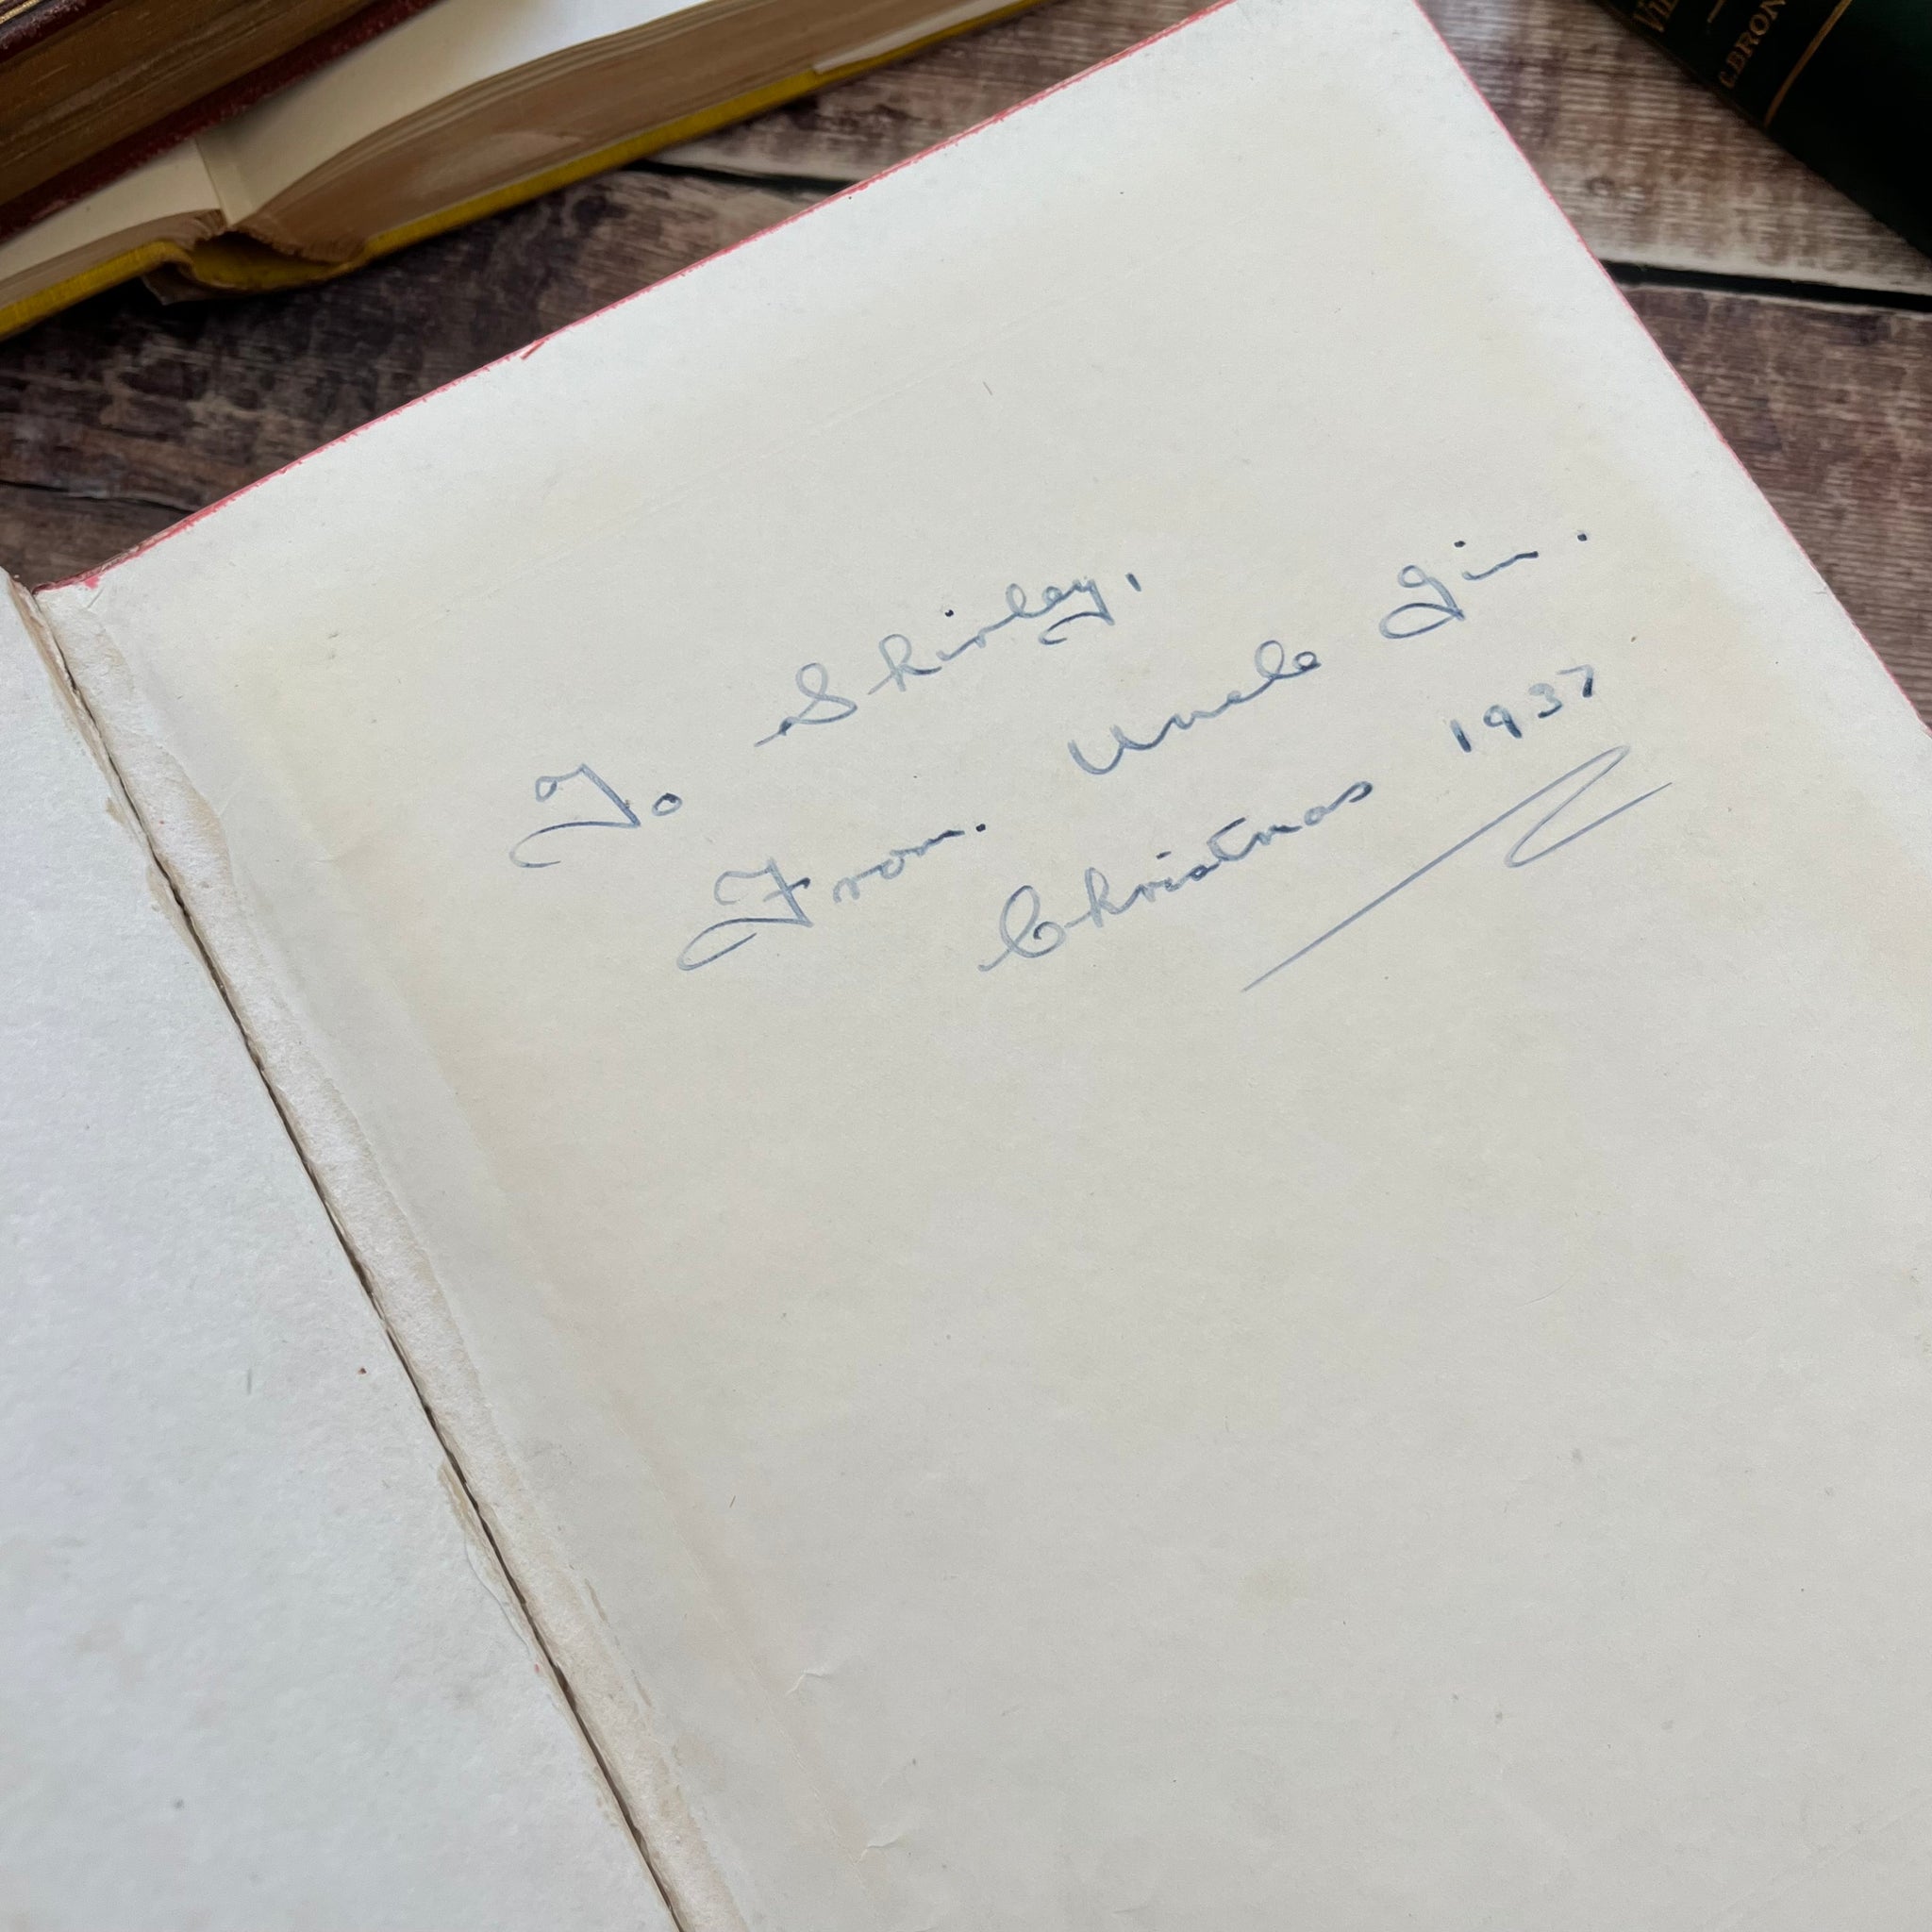 To Shirley,
From. Uncle Jim.
Christmas 1937
C.BRON